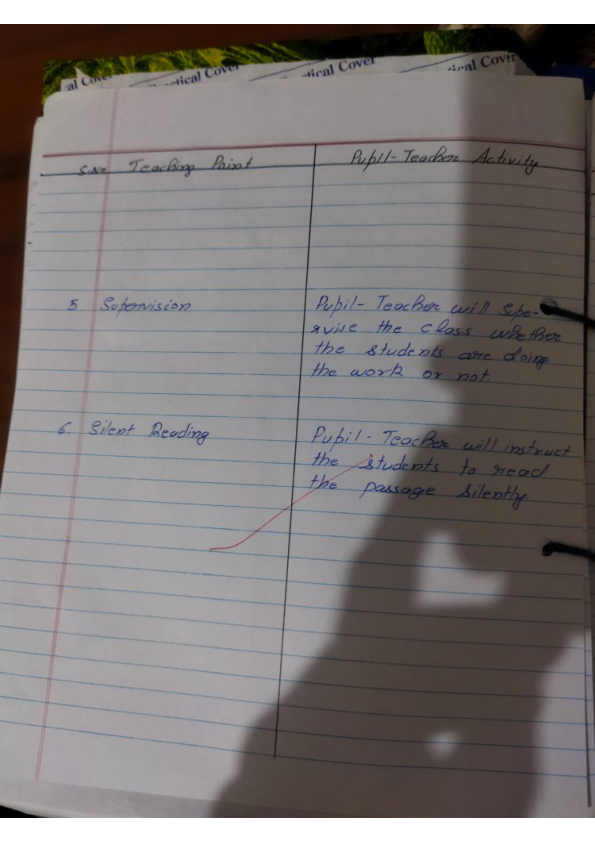 al Cover
tical Cover
tical Cover
ical Cover
S.No Teaching Point Pupil-Teacher Activity
5 Supervision
Pupil-Teacher will supe-
rvise the class whether
the students are doing
the work or not.
6. Silent Reading
Pupil-Teacher will instruct
the students to read
the passage silently